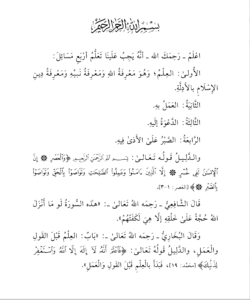 بِسْمِ اللَّهِ الرَّحْمَنِ الرَّحِيمِ
اعْلَمْ ـ رَحِمَكَ اللَّهُ ـ أَنَّهُ يَجِبُ عَلَيْنَا تَعَلُّمُ أَرْبَعِ مَسَائِلَ:
الأُولَىٰ: العِلْمُ؛ وَهُوَ مَعْرِفَةُ اللَّهِ وَمَعْرِفَةُ نَبِيِّهِ وَمَعْرِفَةُ دِينِ
الإِسْلَامِ بِالأَدِلَّةِ.
الثَّانِيَةُ: العَمَلُ بِهِ.
الثَّالِثَةُ: الدَّعْوَةُ إِلَيْهِ.
الرَّابِعَةُ: الصَّبْرُ عَلَىٰ الأَذَىٰ فِيهِ.
وَالدَّلِيلُ قَوْلُهُ تَعَالَىٰ: بِسْمِ اللَّهِ الرَّحْمَنِ الرَّحِيمِ ﴿وَالْعَصْرِ ۞ إِنَّ
الْإِنسَانَ لَفِي خُسْرٍ ۞ إِلَّا الَّذِينَ آمَنُوا وَعَمِلُوا الصَّالِحَاتِ وَتَوَاصَوْا بِالْحَقِّ وَتَوَاصَوْا
بِالصَّبْرِ ۞﴾ [العصر: ١-٣].
قَالَ الشَّافِعِيُّ ـ رَحِمَهُ اللَّهُ تَعَالَىٰ ـ: «هَذِهِ السُّورَةُ لَوْ مَا أَنْزَلَ
اللَّهُ حُجَّةً عَلَىٰ خَلْقِهِ إِلَّا هِيَ لَكَفَتْهُمْ».
وَقَالَ البُخَارِيُّ ـ رَحِمَهُ اللَّهُ تَعَالَىٰ ـ: «بَابٌ: العِلْمُ قَبْلَ القَوْلِ
وَالعَمَلِ، وَالدَّلِيلُ قَوْلُهُ تَعَالَىٰ: ﴿فَاعْلَمْ أَنَّهُ لَا إِلَهَ إِلَّا اللَّهُ وَاسْتَغْفِرْ
لِذَنبِكَ﴾ [محمد: ١٩]، فَبَدَأَ بِالعِلْمِ قَبْلَ القَوْلِ وَالعَمَلِ».